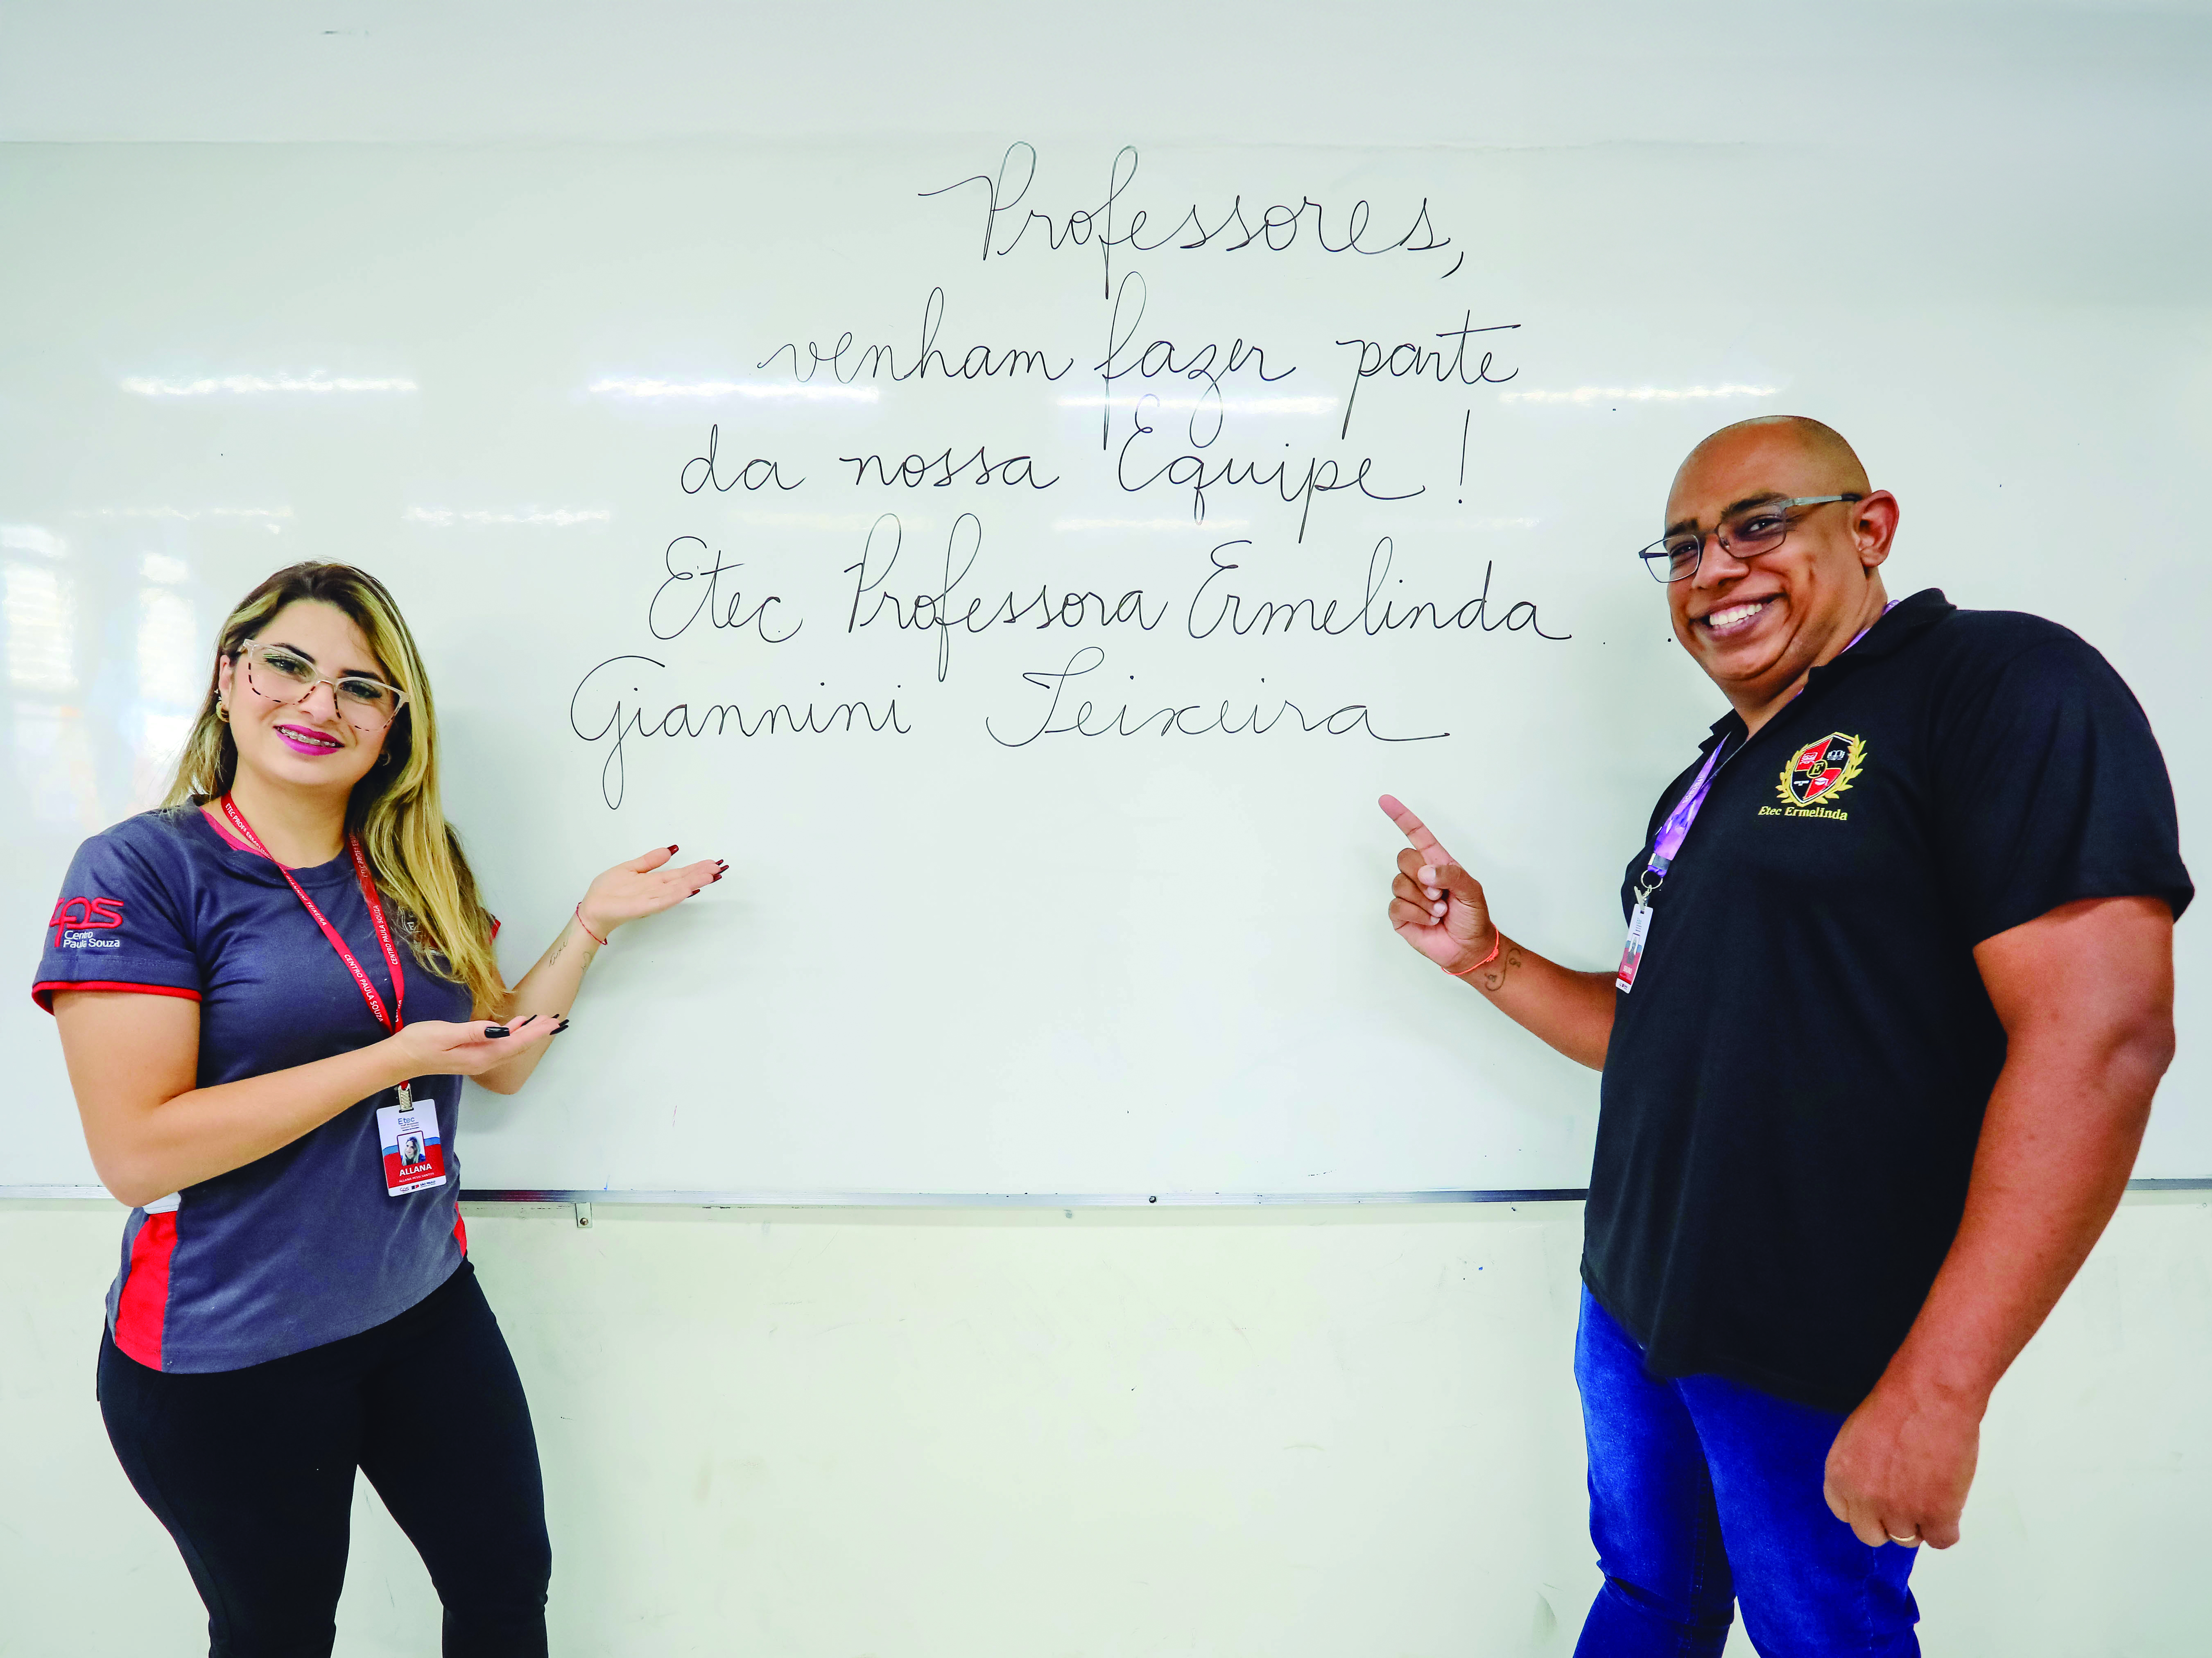 Professores,
venham fazer parte
da nossa Equipe!
Etec Professora Ermelinda
Giannini Teixeira
cps
Centro
Paula Souza
CENTRO PAULA SOUZA
Etec
ALLANA
E
Etec Ermelinda